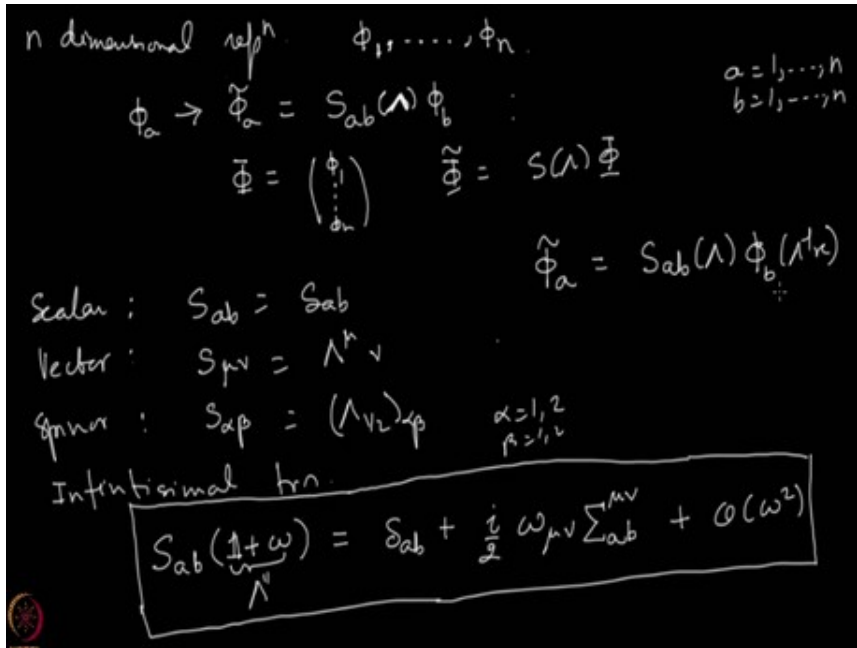 n dimensional repⁿ. ϕ₁, ....., ϕₙ.
a = 1, ---, n
b = 1, ---, n
ϕ_a → ϕ̃_a = S_ab(Λ) ϕ_b :
Φ = (ϕ₁ ⋮ ϕₙ) Φ̃ = S(Λ) Φ
ϕ̃_a = S_ab(Λ) ϕ_b(Λ⁻¹x)
Scalar : S_ab = δ_ab
Vector : S_μν = Λ^μ_ν
Spinor : S_αβ = (Λ_1/2)_αβ α = 1, 2
β = 1, 2
Infintisimal trn.
S_ab(1 + ω) = δ_ab + i/2 ω_μν Σ^μν_ab + O(ω²)
Λ